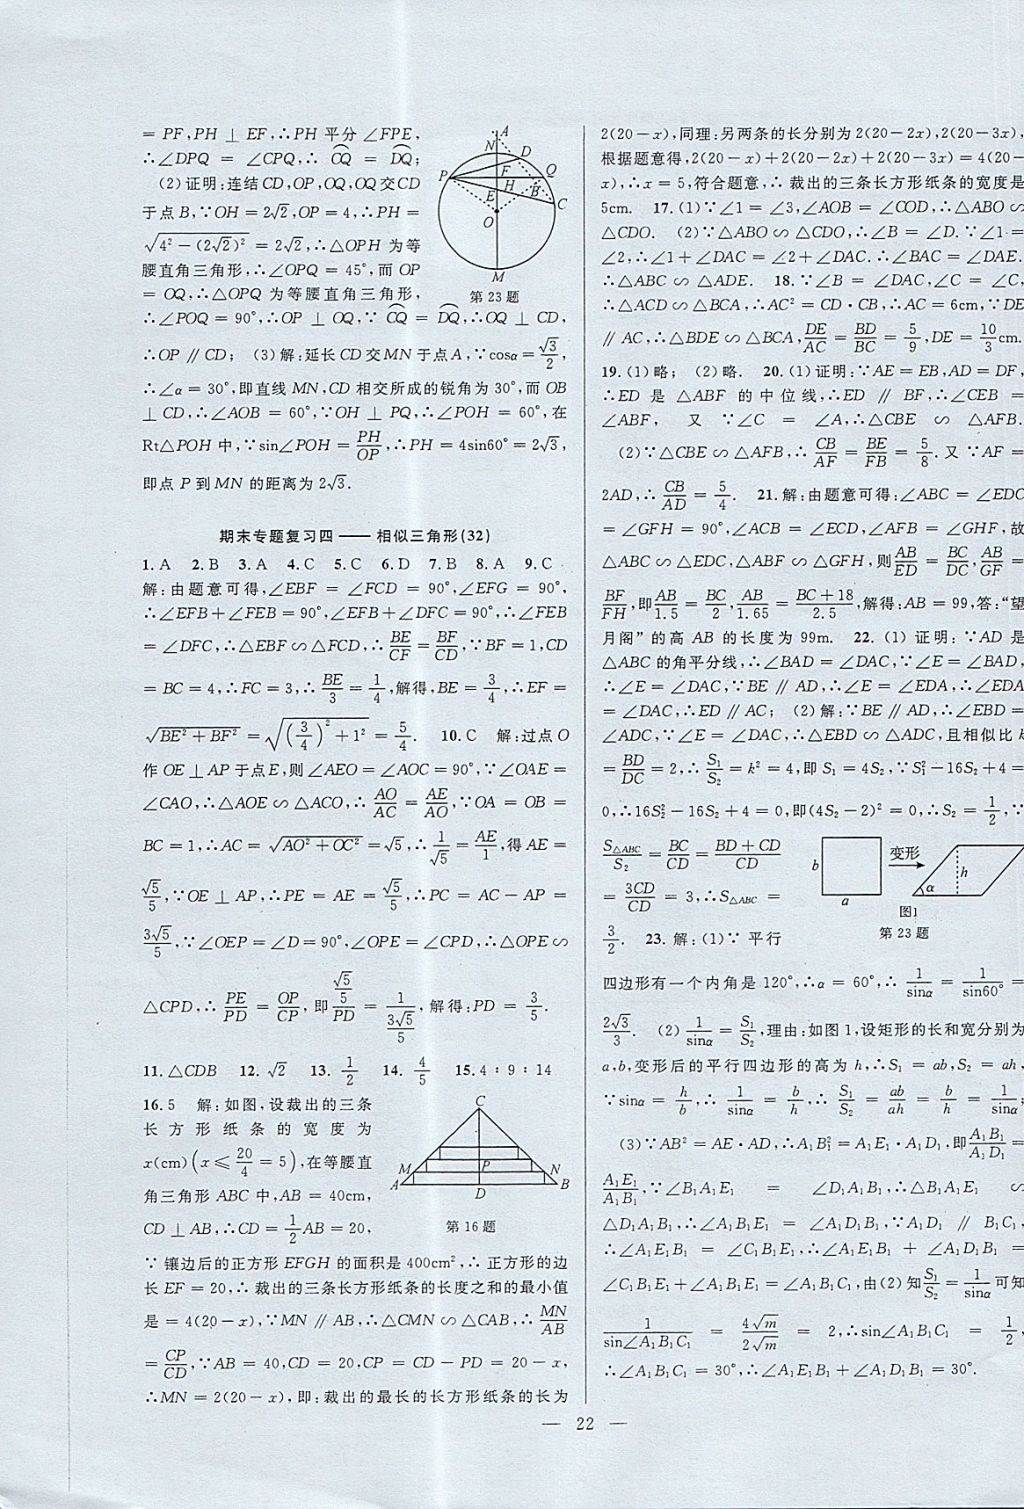 = PF,PH ⊥ EF,∴PH 平分 ∠FPE,
∴∠DPQ = ∠CPQ,∴ C͡Q = D͡Q;
(2)证明:连结 CD,OP,OQ,OQ 交 CD
于点 B,∵OH = 2√2,OP = 4,∴PH =
√(4²-(2√2)²) = 2√2,∴△OPH 为等
腰直角三角形,∴∠OPQ = 45°,而 OP
= OQ,∴△OPQ 为等腰直角三角形,
∴∠POQ = 90°,∴OP ⊥ OQ,∵ C͡Q = D͡Q,∴OQ ⊥ CD,
∴OP ∥ CD; (3)解:延长 CD 交 MN 于点 A,∵cosα = √3/2,
∴∠α = 30°,即直线 MN,CD 相交所成的锐角为 30°,而 OB
⊥ CD,∴∠AOB = 60°,∵OH ⊥ PQ,∴∠POH = 60°,在
Rt△POH 中,∵sin∠POH = PH/OP,∴PH = 4sin60° = 2√3,
即点 P 到 MN 的距离为 2√3.
A N D P F Q H B E C O M
第 23 题
期末专题复习四 —— 相似三角形(32)
1. A 2. B 3. A 4. C 5. C 6. D 7. B 8. A 9. C
解:由题意可得,∠EBF = ∠FCD = 90°,∠EFG = 90°,
∴∠EFB+∠FEB = 90°,∠EFB+∠DFC = 90°,∴∠FEB
= ∠DFC,∴△EBF ∽ △FCD,∴BE/CF = BF/CD,∵BF = 1,CD
= BC = 4,∴FC = 3,∴BE/3 = 1/4,解得,BE = 3/4,∴EF =
√(BE²+BF²) = √((3/4)²+1²) = 5/4. 10. C 解:过点 O
作 OE ⊥ AP 于点 E,则 ∠AEO = ∠AOC = 90°,∵∠OAE =
∠CAO,∴△AOE ∽ △ACO,∴AO/AC = AE/AO,∵OA = OB =
BC = 1,∴AC = √(AO²+OC²) = √5,∴1/√5 = AE/1,得 AE =
√5/5,∵OE ⊥ AP,∴PE = AE = √5/5,∴PC = AC - AP =
3√5/5,∵∠OEP = ∠D = 90°,∠OPE = ∠CPD,∴△OPE ∽
△CPD,∴PE/PD = OP/CP,即 (√5/5)/PD = 1/(3√5/5),解得:PD = 3/5.
11. △CDB 12. √2 13. 1/2 14. 4/5 15. 4 : 9 : 14
16. 5 解:如图,设裁出的三条
长方形纸条的宽度为
x(cm)(x ⩽ 20/4 = 5),在等腰直
角三角形 ABC 中,AB = 40cm,
CD ⊥ AB,∴CD = 1/2AB = 20,
C M P N A D B
第 16 题
∵ 镶边后的正方形 EFGH 的面积是 400cm²,∴ 正方形的边
长 EF = 20,∴ 裁出的三条长方形纸条的长度之和的最小值
是 = 4(20-x),∵MN ∥ AB,∴△CMN ∽ △CAB,∴MN/AB
= CP/CD,∵AB = 40,CD = 20,CP = CD - PD = 20-x,
∴MN = 2(20-x),即:裁出的最长的长方形纸条的长为
2(20-x),同理:另两条的长分别为 2(20-2x),2(20-3x),
根据题意得,2(20-x)+2(20-2x)+2(20-3x) = 4(20-
x),∴x = 5,符合题意,∴ 裁出的三条长方形纸条的宽度是
5cm. 17. (1)∵∠1 = ∠3,∠AOB = ∠COD,∴△ABO ∽
△CDO. (2)∵△ABO ∽ △CDO,∴∠B = ∠D.∵∠1 =
∠2,∴∠1+∠DAC = ∠2+∠DAC.∴∠BAC = ∠DAE.
∴△ABC ∽ △ADE. 18. ∵∠B = ∠DAC,∠C = ∠C,
∴△ACD ∽ △BCA,∴AC² = CD·CB,∴AC = 6cm,∵DE
∥ AC,∴△BDE ∽ △BCA,DE/AC = BD/BC = 5/9,DE = 10/3cm.
19. (1)略; (2)略. 20. (1)证明:∵AE = EB,AD = DF,
∴ED 是 △ABF 的中位线,∴ED ∥ BF,∴∠CEB =
∠ABF, 又 ∵∠C = ∠A,∴△CBE ∽ △AFB.
(2)∵△CBE ∽ △AFB,∴CB/AF = BE/FB = 5/8. 又 ∵AF =
2AD,∴CB/AD = 5/4. 21. 解:由题意可得:∠ABC = ∠EDC
= ∠GFH = 90°,∠ACB = ∠ECD,∠AFB = ∠GHF,故
△ABC ∽ △EDC,△ABF ∽ △GFH,则AB/ED = BC/DC,AB/GF =
BF/FH,即AB/1.5 = BC/2,AB/1.65 = (BC+18)/2.5,解得:AB = 99,答:“望
月阁”的高 AB 的长度为 99m. 22. (1) 证明:∵AD 是
△ABC 的角平分线,∴∠BAD = ∠DAC,∵∠E = ∠BAD,
∴∠E = ∠DAC,∵BE ∥ AD,∴∠E = ∠EDA,∴∠EDA
= ∠DAC,∴ED ∥ AC; (2)解:∵BE ∥ AD,∴∠EBD =
∠ADC,∵∠E = ∠DAC,∴△EBD ∽ △ADC,且相似比 k
= BD/DC = 2,∴S₁/S₂ = k² = 4,即 S₁ = 4S₂,∵S₁²-16S₂+4 =
0,∴16S₂²-16S₂+4 = 0,即(4S₂-2)² = 0,∴S₂ = 1/2,∵
S△ABC/S₂ = BC/CD = (BD+CD)/CD
= 3CD/CD = 3,∴S△ABC =
3/2. 23. 解:(1)∵ 平行
b a 变形 h α
图1
第 23 题
四边形有一个内角是 120°,∴α = 60°,∴ 1/sinα = 1/sin60° =
2√3/3. (2)1/sinα = S₁/S₂,理由:如图 1,设矩形的长和宽分别为
a,b,变形后的平行四边形的高为 h,∴S₁ = ab,S₂ = ah,
∵sinα = h/b,∴ 1/sinα = b/h,∴ S₁/S₂ = ab/ah = b/h = 1/sinα;
(3)∵AB² = AE·AD,∴A₁B₁² = A₁E₁·A₁D₁,即A₁B₁/A₁D₁ =
A₁E₁/A₁B₁,∵∠B₁A₁E₁ = ∠D₁A₁B₁,∴△B₁A₁E₁ ∽
△D₁A₁B₁,∴∠A₁B₁E₁ = ∠A₁D₁B₁,∵A₁D₁ ∥ B₁C₁,
∴∠A₁E₁B₁ = ∠C₁B₁E₁,∴∠A₁E₁B₁ + ∠A₁D₁B₁ =
∠C₁B₁E₁+∠A₁B₁E₁ = ∠A₁B₁C₁,由(2)知S₁/S₂ = 1/sinα可知
1/sin∠A₁B₁C₁ = 4√m/2√m = 2,∴sin∠A₁B₁C₁ = 1/2,
∴∠A₁B₁C₁ = 30°,∴∠A₁E₁B₁+∠A₁D₁B₁ = 30°.
— 22 —